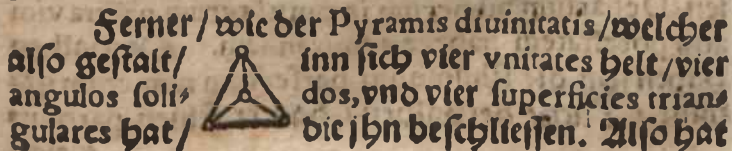 Ferner/ wie der Pyramis diuinitatis/welcher
also gestalt/ inn sich vier vnitates helt/vier
angulos soli⸗ dos, vnd vier superficies trian⸗
gulares hat/ die jhn beschliessen. Also hat